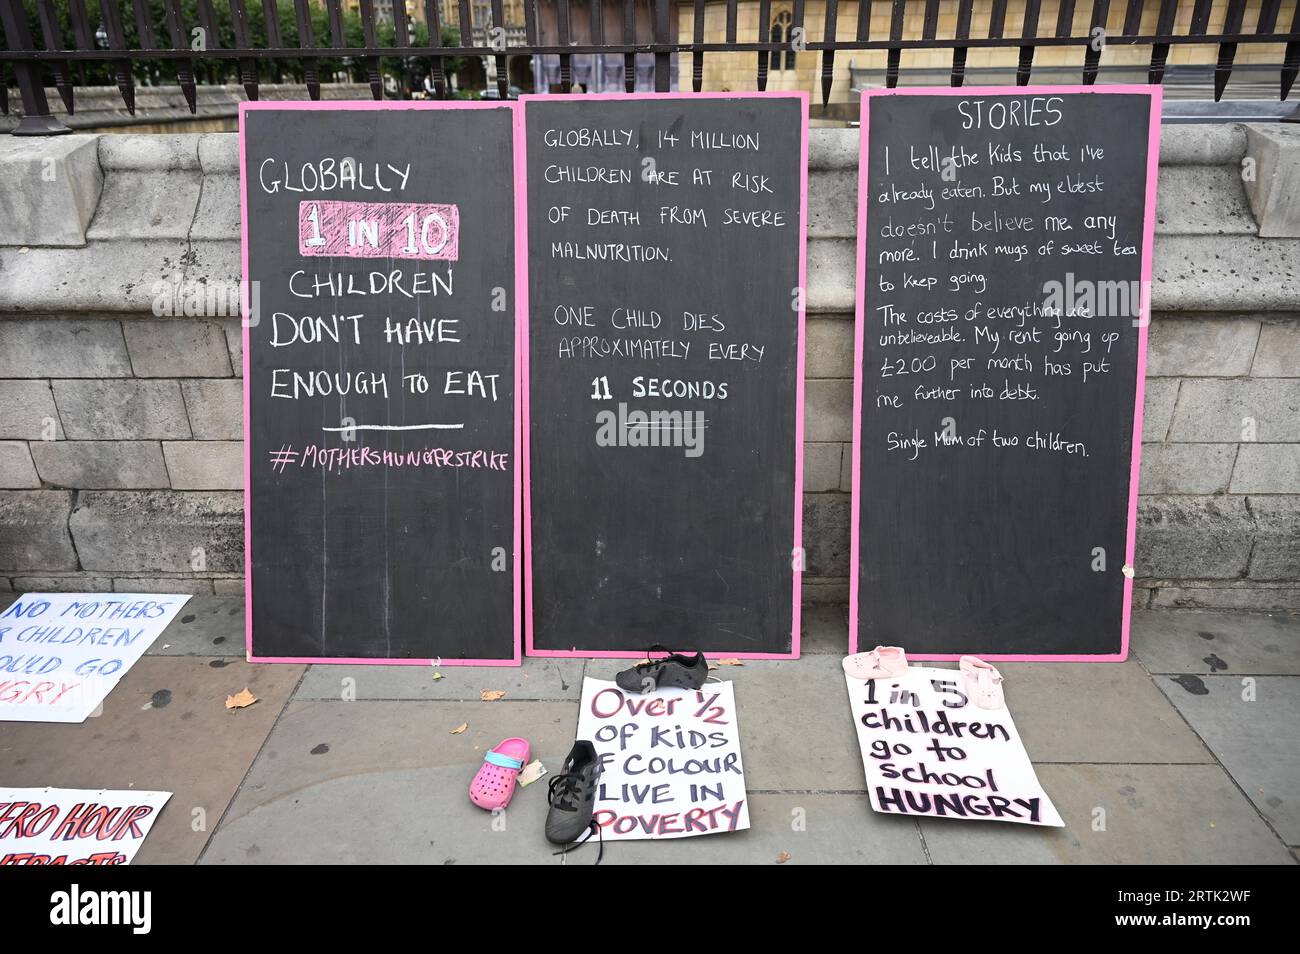 GLOBALLY
1 IN 10
CHILDREN
DON'T HAVE
ENOUGH TO EAT
#MOTHERSHUNGERSTRIKE
GLOBALLY, 14 MILLION
CHILDREN ARE AT RISK
OF DEATH FROM SEVERE
MALNUTRITION.
ONE CHILD DIES
APPROXIMATELY EVERY
11 SECONDS
STORIES
I tell the kids that I've
already eaten. But my eldest
doesn't believe me any
more. I drink mugs of sweet tea
to keep going
The costs of everything are
unbelieveable. My rent going up
£200 per month has put
me further into debt.
Single Mum of two children.
NO MOTHERS
CHILDREN
OULD GO
NGRY
ERO HOUR
NTRACTS
OVER 1/2
OF KIDS
OF COLOUR
LIVE IN
POVERTY
1 in 5
children
go to
school
HUNGRY
alamy
Image ID: 2RTK2WF
www.alamy.com